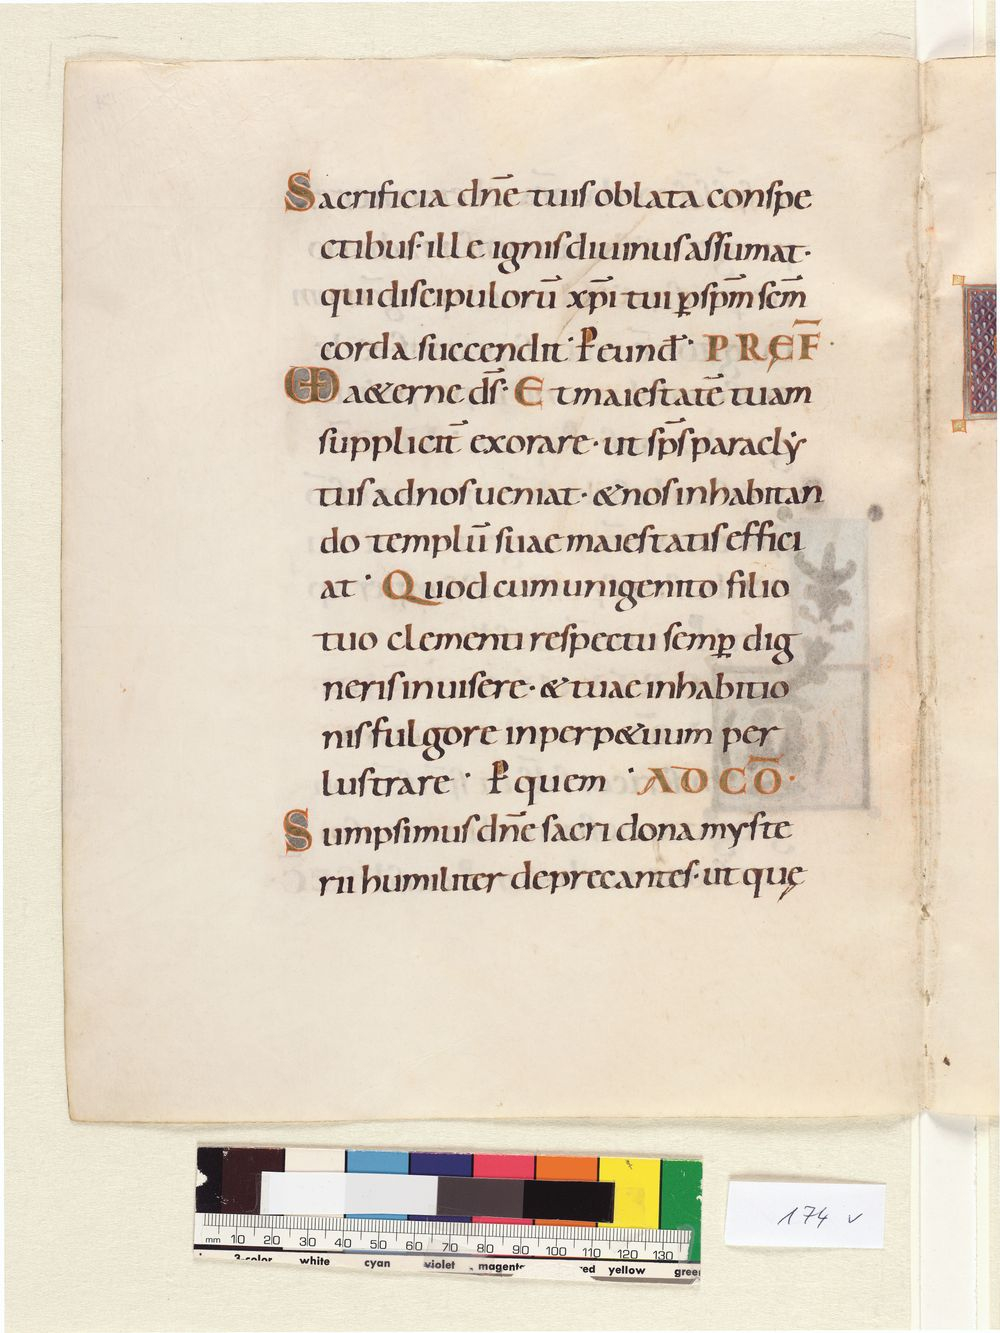 Sacrificia dn̄e tuis oblata conspe
ctibus· ille ignis diuinus assumat·
qui discipulorū xp̄i tui ꝑ sp̄m scm̄
corda succendit· P̲ eund̄· PRĘF̄·
VD aeterne ds̄· Et maiestatē tuam
supplicit̄ exorare· ut sp̄s paracly
tus ad nos ueniat· & nos inhabitan
do templū suae maiestatis effici
at· Quod cum unigenito filio
tuo clementi respectu semꝑ dig
neris inuisere· & tuae inhabitio
nis fulgore in perp&uum per
lustrare· P̲ quem· AD CŌ·
Sumpsimus dn̄e sacri dona myste
rii humiliter deprecantes· ut quę
174 v
mm 10 20 30 40 50 60 70 80 90 100 110 120 130
3-color white cyan violet magenta red yellow green